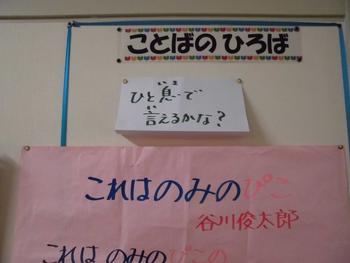 ことばの ひろば
ひと息で
言えるかな?
これはのみのぴこ
谷川俊太郎
これは のみのぴこの